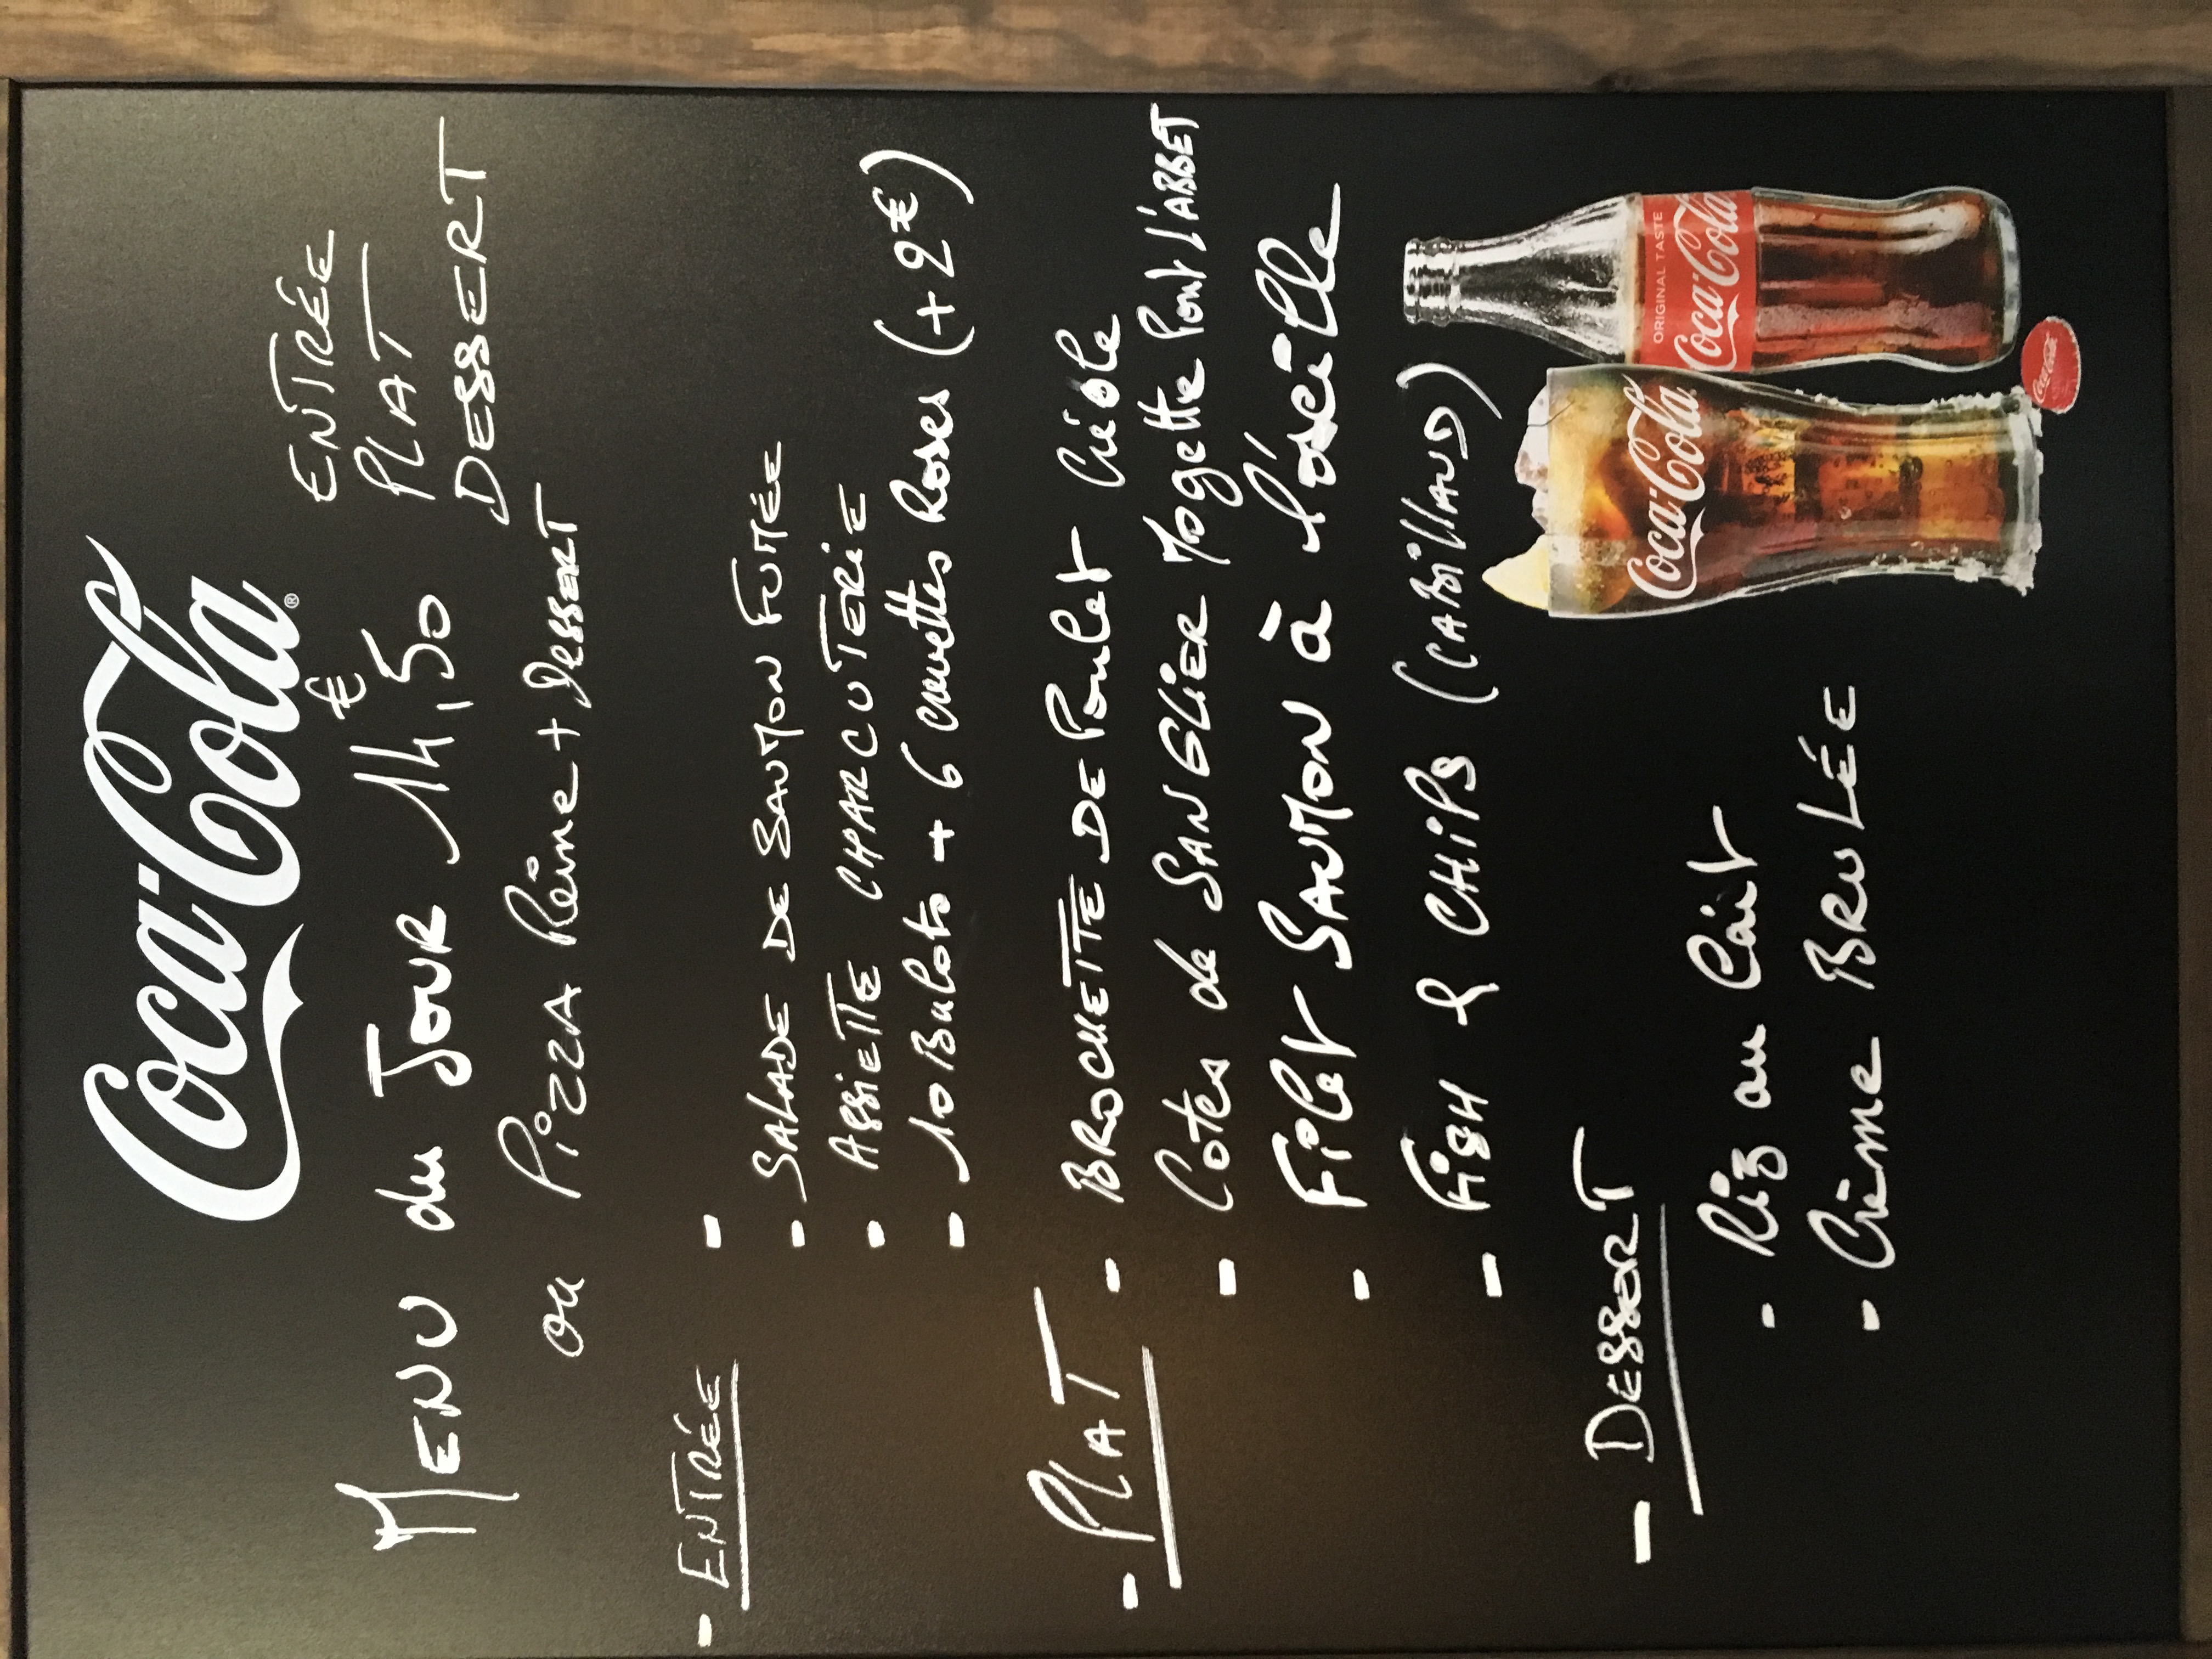 Coca-Cola®
MENU du JOUR 14,50 €
ENTRÉE
PLAT
DESSERT
ou PIZZA Reine + DESSERT
- ENTRÉE -
- SALADE DE SAUMON FUMÉE
- ASSIETTE CHARCUTERIE
- 10 Bulots + 6 crevettes Roses (+ 2€)
- PLAT - BROCHETTE DE Poulet Créole
- Cotes de SANGLIER Mogette Pont L'ABBET
- Filet SAUMON à l'oseille
- FISH & CHIPS (CABILLAUD)
- DESSERT
- Riz au Lait
- Crème BRULÉE
ORIGINAL TASTE
Coca-Cola
Coca-Cola
Coca-Cola